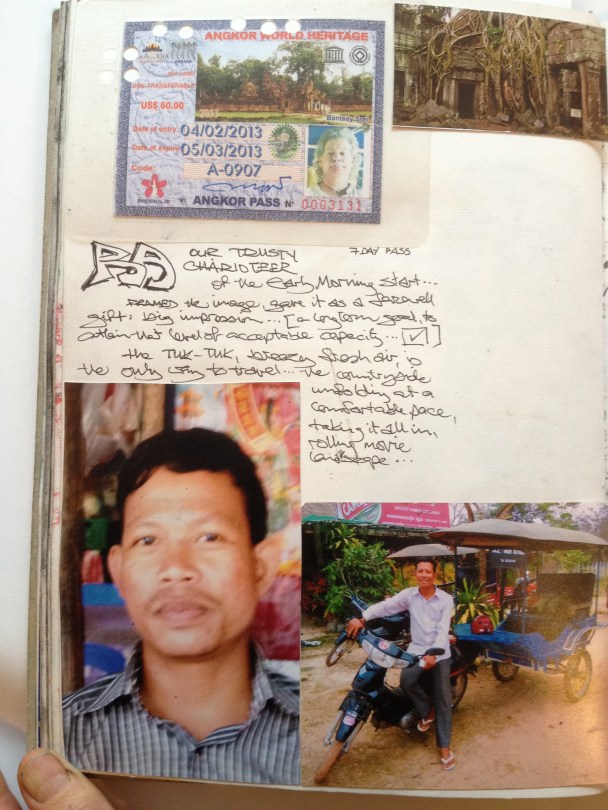 ANGKOR WORLD HERITAGE
NON-TRANSFERABLE
US$ 60.00
Banteay Srei
Date of entry: 04/02/2013
Date of expiry: 05/03/2013
Code: A-0907
ANGKOR PASS Nº 0003131
OUR TRUSTY
7 DAY PASS
CHARIOTEER
of the Early Morning start...
FRAMED the image, gave it as a farewell
gift: big impression... [a long term goal, to
attain that level of acceptable capacity... [✓]
the TUK-TUK, breezy fresh air, is
the only way to travel... the countryside
unfolding at a
comfortable pace,
taking it all in,
rolling movie
landscape...